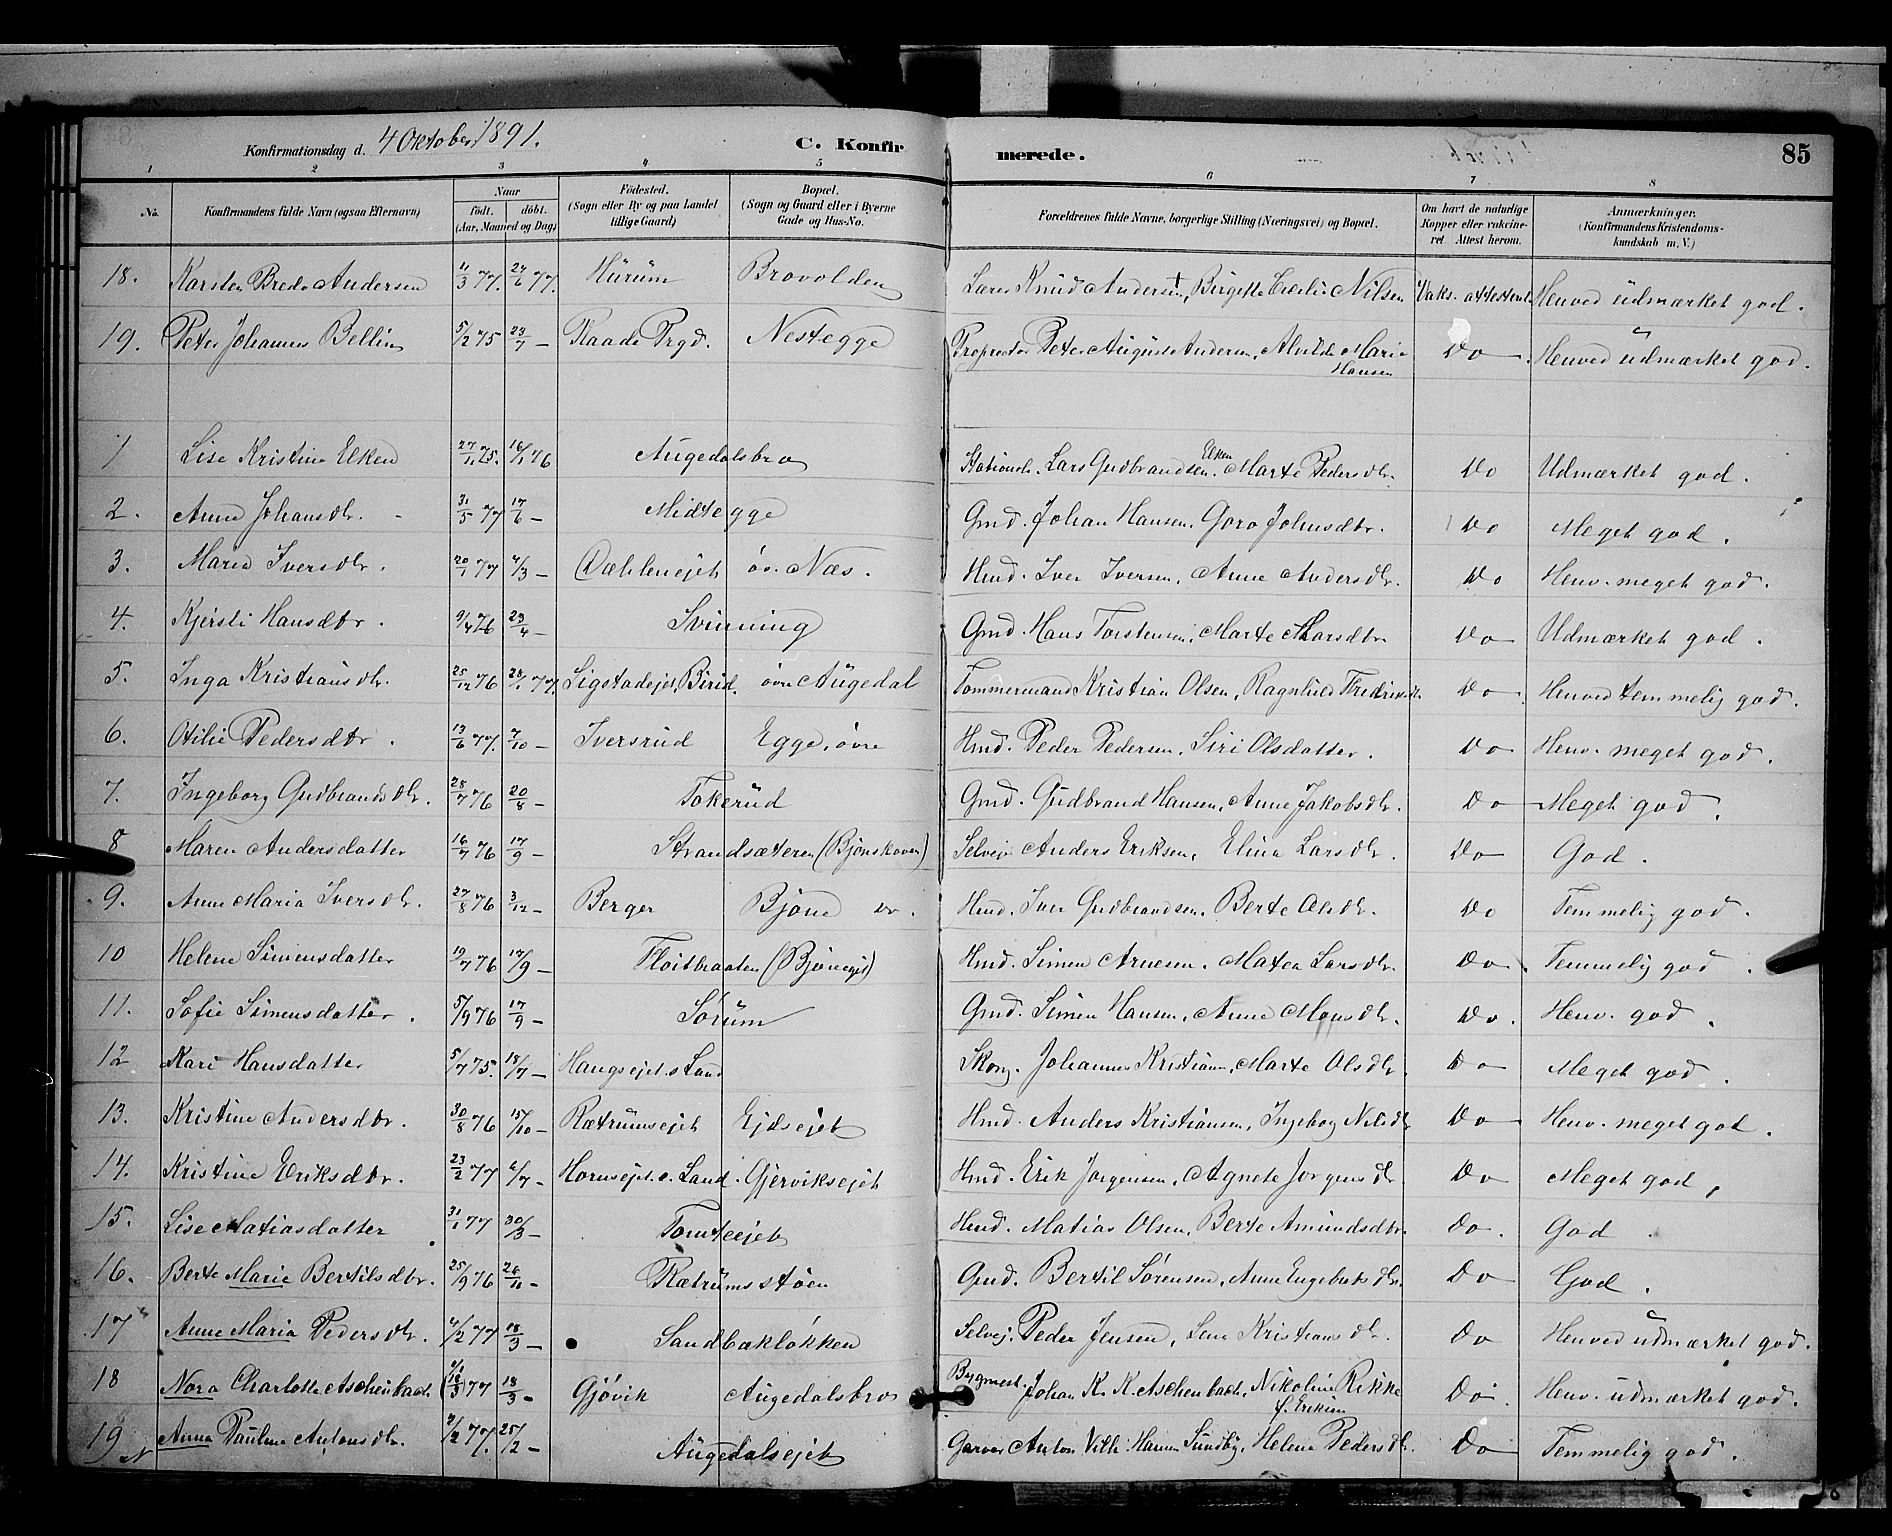 Konfirmationsdag d. 4 Oktober 1891.
C. Konfir merede.
85
1 2 3 4 5 6 7 8
No.
Konfirmandens fulde Navn (ogsaa Efternavn)
Naar
födt. döbt.
(Aar, Maaned og Dag)
Födested.
(Sogn eller By og paa Landet
tillige Gaard)
Bopæl.
(Sogn og Gaard eller i Byerne
Gade og Hus-No.
Forældrenes fulde Navne, borgerlige Stilling (Næringsvei) og Bopæl.
Om havt de naturlige
Kopper eller vakcine-
ret Attest herom.
Anmærkninger.
(Konfirmandens Kristendoms-
kundskab m. V.)
18. Karsten Brede Andersen 11/3 77. 24/6 77. Hurum Brovolden Lærer Knud Andersen +, Birgitte Cecilie Nilsen Vaks. attesteret Henved udmærket god.
19. Peter Johannes Bellin 5/2 75 23/7 - Raade Prgd. Nestegge Proprietær Peter August Andersen, Alvilde Marie Hansen Do Henved udmærket god.
1 Lise Kristine Elken 27/11 75. 16/1 76 Augedalsbro Stationsb. Lars Gudbrandsen Elken. Marte Pedersdtr. Do Udmærket god.
2. Anne Johansdtr. 31/5 77 17/6 - Midtegge Gmd. Johan Hansen, Goro Johnsdtr. Do Meget god.
3. Maria Iversdtr. 20/1 77 4/3 - Dæhlenejet öv. Næs. Hmd. Iver Iversen, Anne Andersdtr. Do Henv. meget god.
4. Kjersti Hansdtr. 9/4 76 23/4 - Svinning Gmd. Hans Torstensen, Marte Larsdtr Do Udmærket god.
5. Inga Kristiansdtr. 25/12 76 28/1 77. Sigstadejet, Birid. övre Augedal Tømmermand Kristian Olsen, Ragnhild Fredriksdtr. Do Henved temmelig god.
6. Otilie Pedersdtr. 13/6 77. 7/10 - Iversrud Egge, övre Hmd. Peder Pedersen, Siri Olsdatter. Do Henv. meget god.
7. Ingeborg Gudbrandsdtr. 28/7 76 20/8 - Tokerud Gmd. Gudbrand Hansen, Anne Jakobsdtr. Do Meget god.
8 Maren Andersdatter 16/7 76 17/9 - Strandsæteren (Bjönskoven) Selvej. Anders Eriksen, Elina Larsdtr. Do God.
9. Anne Maria Iversdtr. 27/8 76 3/12 - Berger Bjöne Hmd. Iver Gudbrandsen. Berte Olsdtr. Do Temmelig god.
10 Helene Simensdatter 19/7 76 17/9 - Flöitbraaten (Bjönejet) Hmd. Simen Arnesen. Matea Larsdtr. Do. Temmelig god.
11. Sofie Simensdatter. 5/9 76 17/9 - Sörum Gmd. Simen Hansen, Anne Monsdtr. Do. Henv. god.
12 Kari Hansdatter 5/7 75. 18/7 - Haugsejet s Land Skom. Johannes Kristiansen, Marte Olsdtr. Do Meget god.
13. Kristine Andersdtr. 30/8 76 15/10 - Rætrumsejet Ejdsejet Hmd. Anders Kristiansen, Ingeborg Nilsdtr Do Henv. meget god.
14. Kristine Eriksdtr. 23/2 77 6/7 - Hornsejet s. Land. Gjerviksejet Hmd. Erik Jörgensen, Agnete Jörgensdtr Do Meget god,
15. Lise Matiasdatter 31/1 77 30/3 - Tomteejet Hmd. Matias Olsen, Berte Amundsdtr. Do. God.
16. Berte Marie Bertilsdtr. 25/9 76 26/11 - Rætrumsstöen Gmd. Bertil Sörensen, Anne Engebretsdtr. Do God.
17 Anne Maria Pedersdtr. 4/2 77 18/3 - Sandbakløkken Selvej. Peder Jensen, Lena Kristiansdtr. Do Henved udmærket god.
18 Nora Charlotte Aschenbach 77 18/3 - Gjövik Augedalsbro Bygmest. Johan K. K. Aschenbach, Nikoline Rikke f. Eriksen Do Henv. udmærket god.
19 Anna Pauline Antonsdtr. 2/2 77. 25/2 - Augedalsejet Garver Anton Vilh. Hansen Sundby, Helene Pedersdtr. Do Temmelig god.